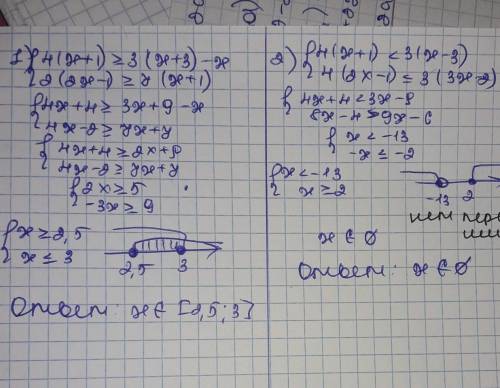 1) { 4(x+1) ≥ 3(x+3) -x
2(2x-1) ≥ 7(x+1)
{ 4x+4 ≥ 3x+9 -x
4x-2 ≥ 7x+7
{ 4x+4 ≥ 2x+9
4x-2 ≥ 7x+7
{ 2x ≥ 5
-3x ≥ 9
{ x ≥ 2,5
x ≤ 3
2,5 3
Ответ: x ∈ [2,5; 3]
2) { 4(x+1) < 3(x-3)
4(2x-1) ≤ 3(3x-2)
{ 4x+4 < 3x-9
8x-4 ≤ 9x-6
{ x < -13
-x ≤ -2
{ x < -13
x ≥ 2
-13 2
нет
x ∈ ∅
Ответ: x ∈ ∅